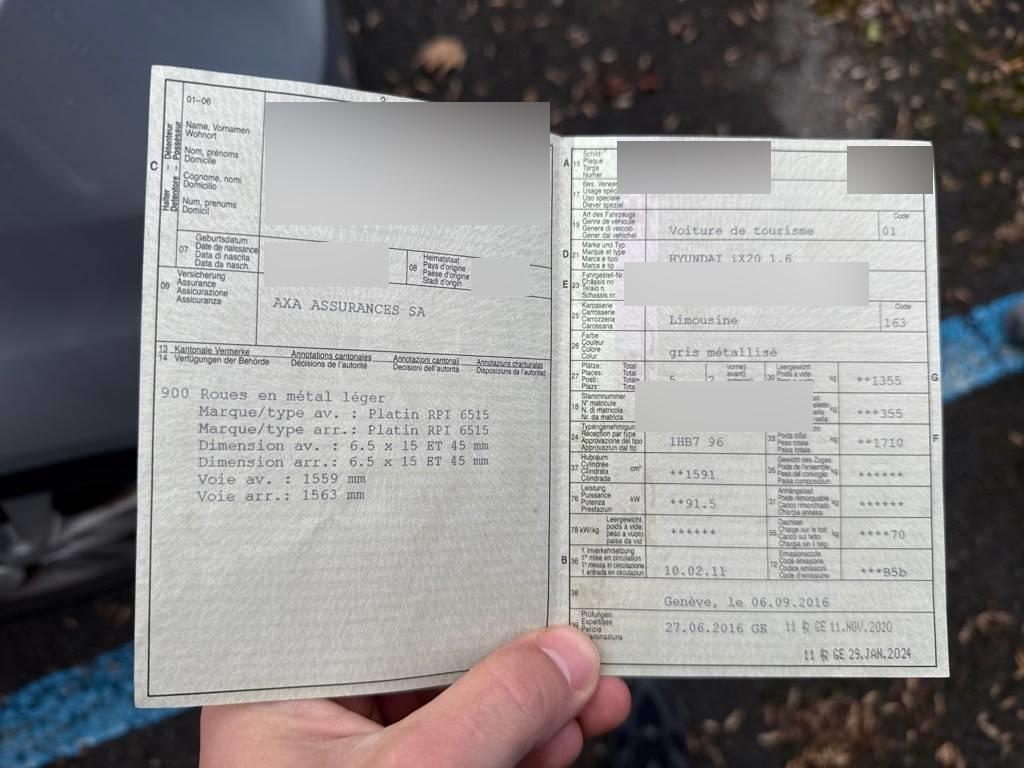 2
01–06
C
Halter – Détenteur
Detentore – Possessur
Name, Vornamen
Wohnort
Nom, prénoms
Domicile
Cognome, nomi
Domicilio
Num, prenums
Domicil
07
Geburtsdatum
Date de naissance
Data di nascita
Data da nasch.
08
Heimatstaat
Pays d'origine
Paese d'origine
Stadi d'origin
09
Versicherung
Assurance
Assicurazione
Assicuranza
AXA ASSURANCES SA
13 Kantonale Vermerke
14 Verfügungen der Behörde
Annotations cantonales
Décisions de l'autorité
Annotazioni cantonali
Decisioni dell'autorità
Annotaziuns chantunalas
Disposiziuns da l'autoritad
900 Roues en métal léger
Marque/type av. : Platin RPI 6515
Marque/type arr.: Platin RPI 6515
Dimension av. : 6.5 x 15 ET 45 mm
Dimension arr.: 6.5 x 15 ET 45 mm
Voie av. : 1559 mm
Voie arr.: 1563 mm
A 15
Schild
Plaque
Targa
Numer
17
Bes. Verwe
Usage spéc
Uso speciale
Diever spezial
19
Art des Fahrzeugs
Genre de véhicule
Genere di veicolo
Gener dal vehichel
Voiture de tourisme
Code
01
D 21
Marke und Typ
Marque et type
Marca e tipo
Marca e tip
HYUNDAI iX20 1.6
E 23
Fahrgestell-Nr.
Châssis no
Telaio n.
Schassis nr.
25
Karosserie
Carrosserie
Carrozzeria
Carossaria
Limousine
Code
163
26
Farbe
Couleur
Colore
Colur
gris métallisé
27
Plätze: Total
Places: Total
Posti: Total
Plazs: Total
5
2
vorne)
avant)
30
Leergewicht
Poids à vide
kg
**1355
G
18
Stammnummer
N° matricule
N. di matricola
Nr. da matricla
kg
***355
24
Typengenehmigung
Réception par type
Approvazione del tipo
Approvaziun dal tip
1HB7 96
33
Poids total
Peso totale
Paisa totala
kg
**1710
F
37
Hubraum
Cylindrée
Cilindrata
Cilindrada
cm³
**1591
35
Gewicht des Zuges
Poids de l'ensemble
Peso del convoglio
Paisa cumposiziun
kg
******
76
Leistung
Puissance
Potenza
Prestaziun
kW
**91.5
31
Anhängelast
Poids remorquable
Carico rimorchiato
Chargia annexa
kg
******
78 kW/kg
Leergewicht
poids à vide
peso a vuoto
paisa da vid
******
55
Dachlast
Charge sur le toit
Carico sul tetto
Chargia sin il tetg
kg
****70
B 36
1. Inverkehrsetzung
1re mise en circulation
1a messa in circolazione
1. entrada en circulaziun
10.02.11
72
Emissionscode
Code émissions
Codice emissioni
Code d'emissiuns
***B5b
38
Genève, le 06.09.2016
39
Prüfungen
Expertises
Perizie
27.06.2016 GE 11 R GE 11.NOV.2020
11 R GE 29.JAN.2024